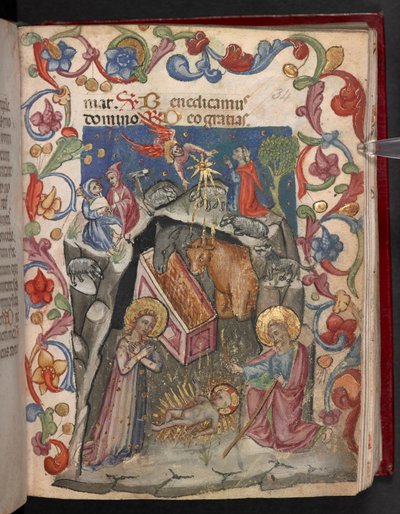 34
mat. V. Benedicamus
domino. R. Deo gratias.